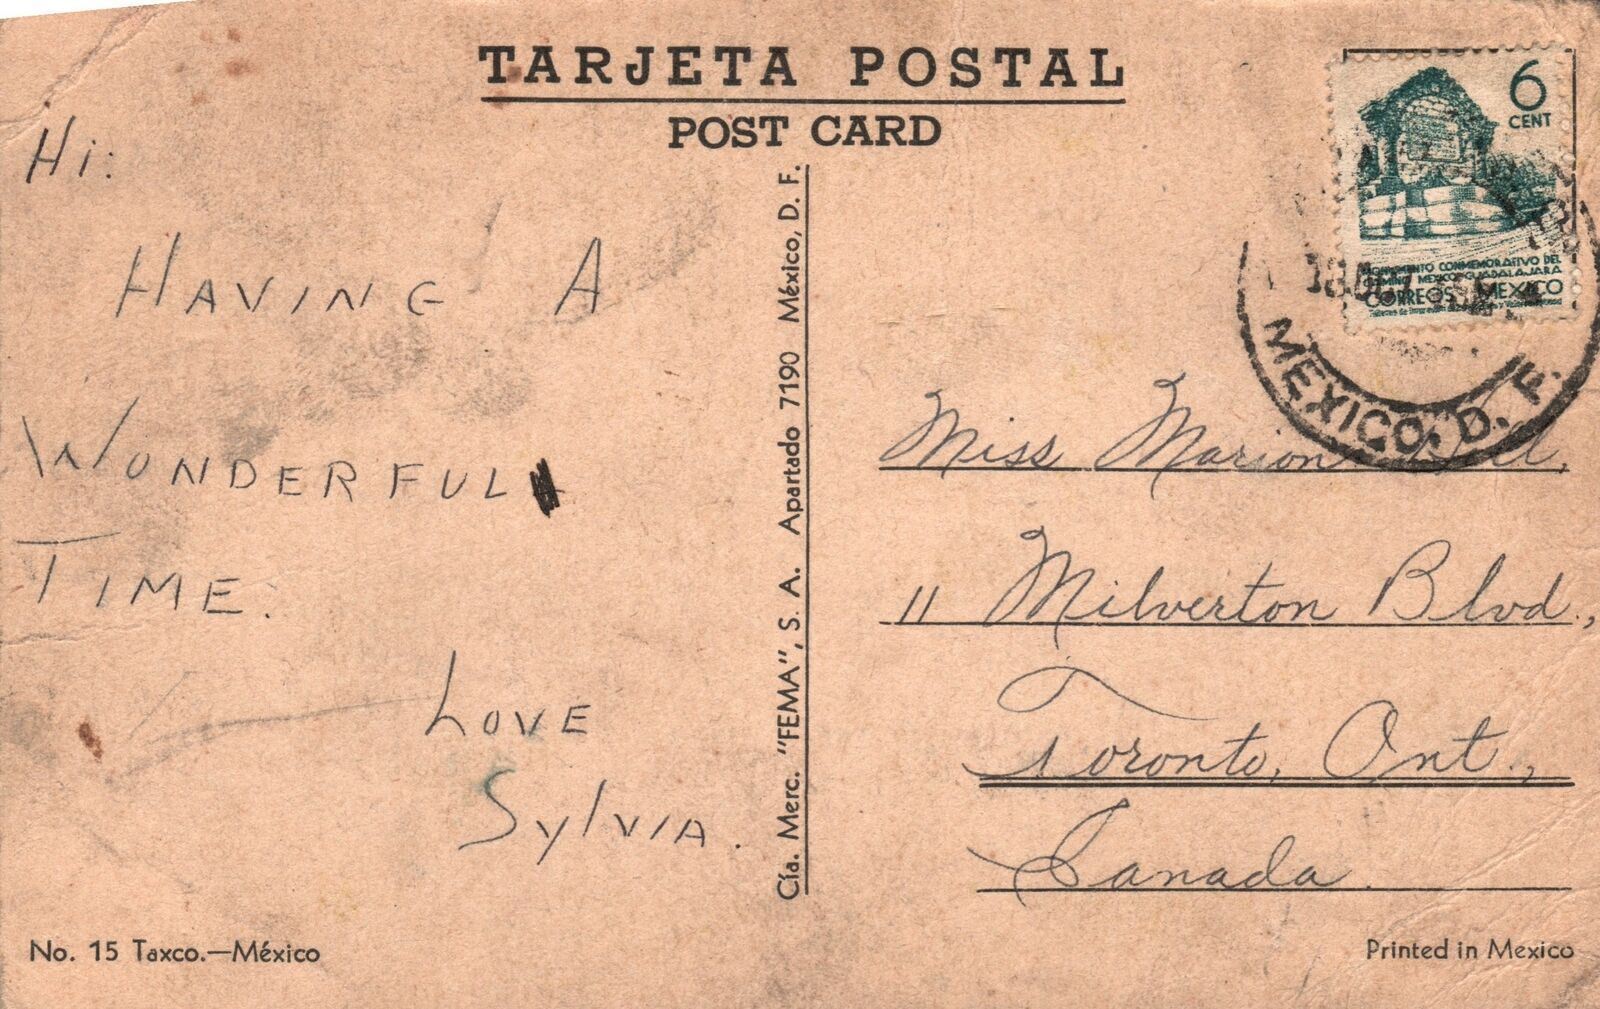 TARJETA POSTAL
POST CARD
Hi:
HAVING A
WONDERFUL
TIME.
LOVE
SYLVIA.
No. 15 Taxco.—México
Cía. Merc. "FEMA", S. A. Apartado 7190 México, D. F.
6
CENT
MONUMENTO CONMEMORATIVO DEL
CAMINO MEXICO-GUADALAJARA
CORREOS MEXICO
MEXICO, D. F.
Miss Marion
11 Milverton Blvd.,
Toronto, Ont.,
Canada.
Printed in Mexico